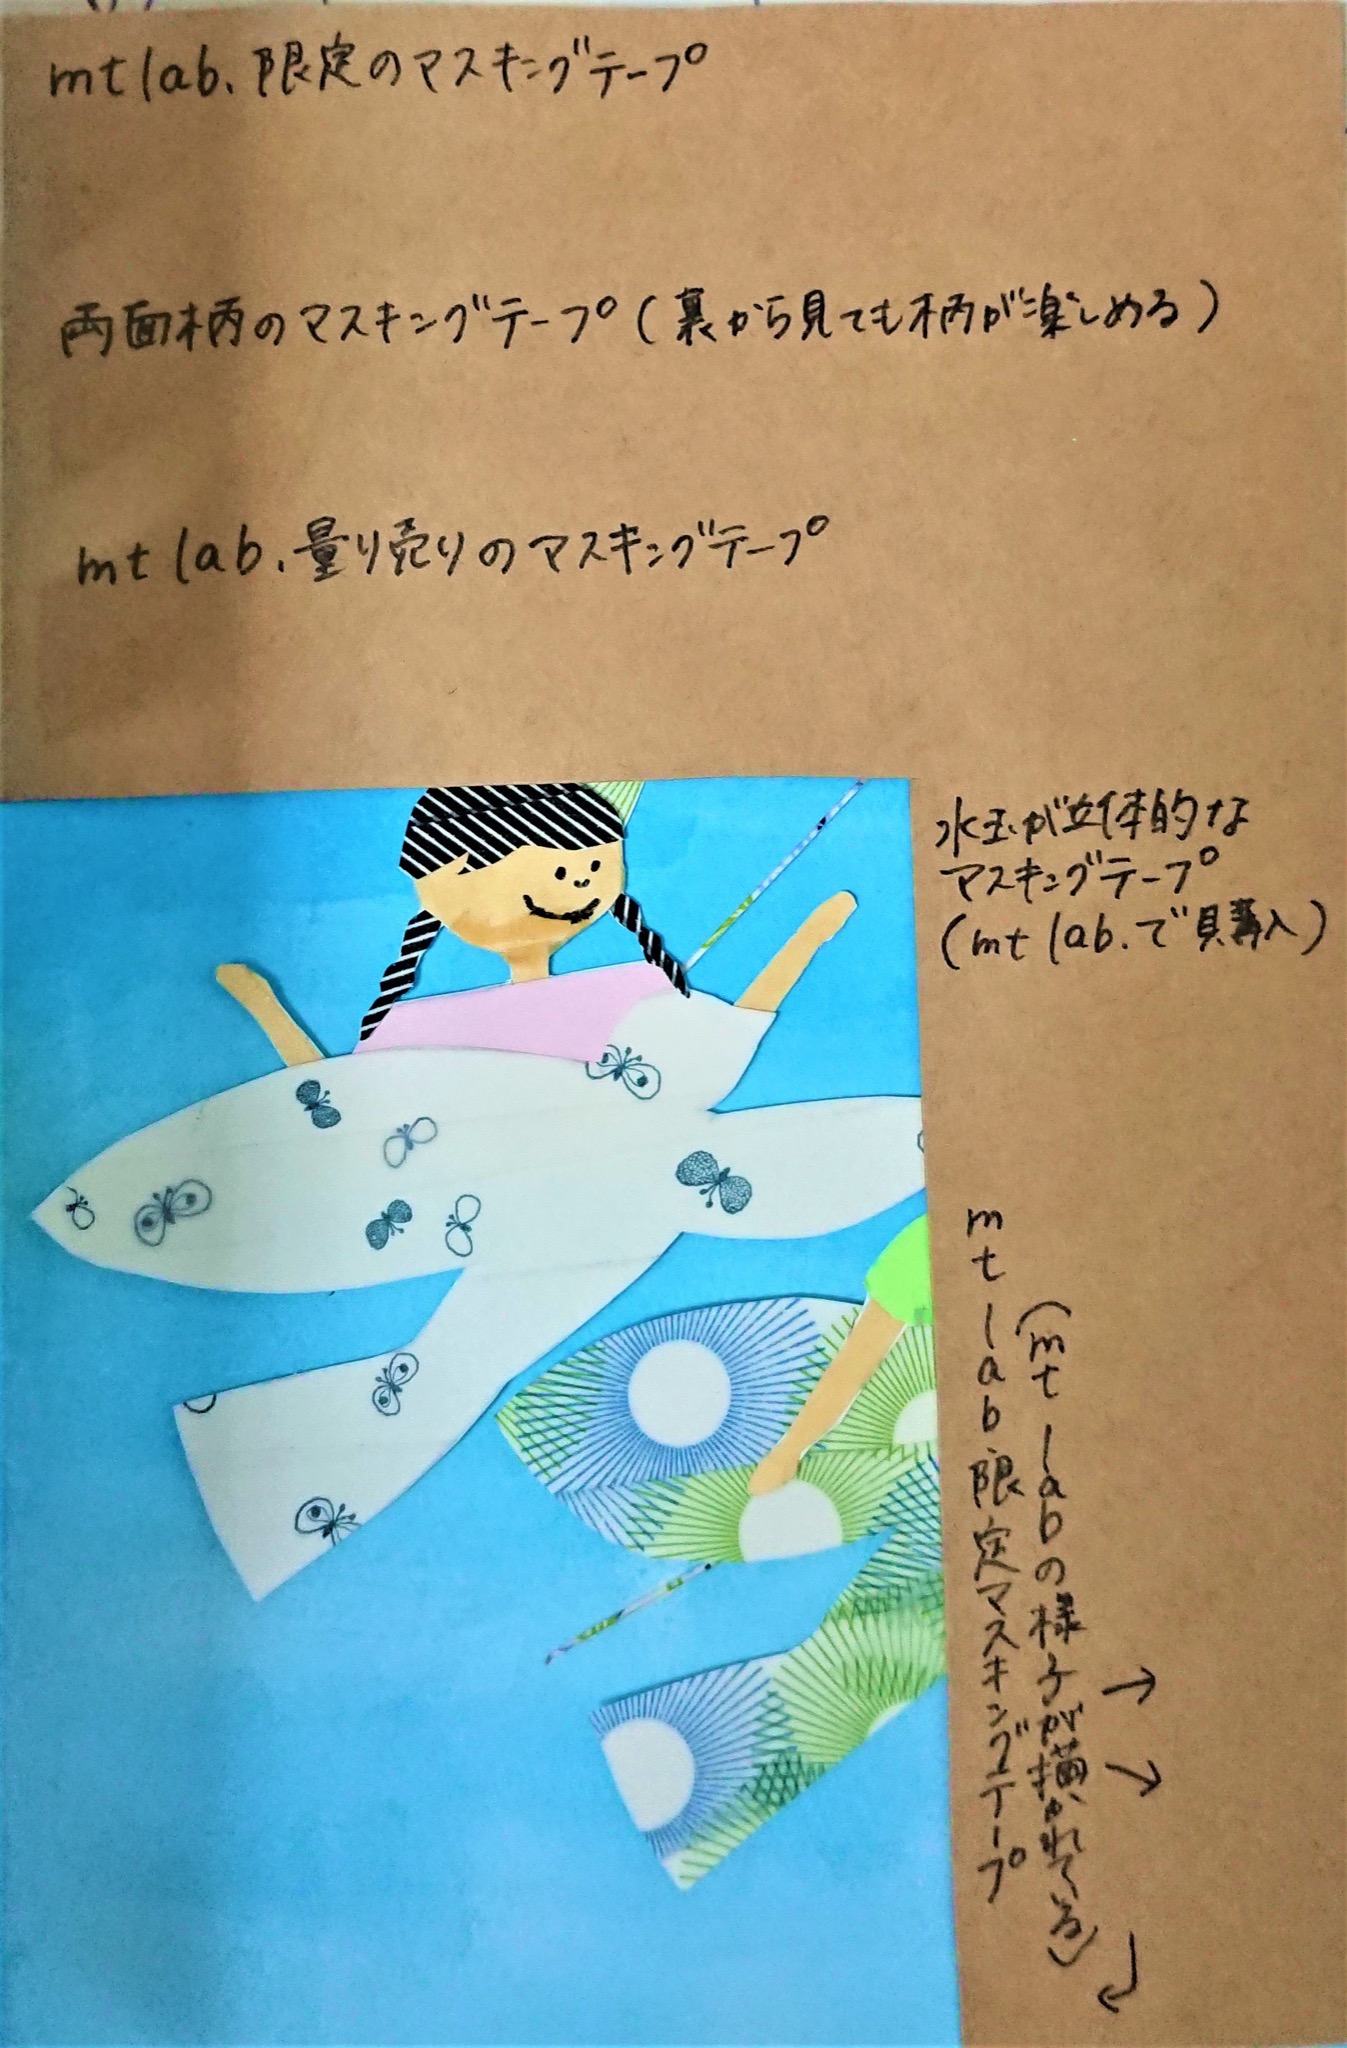 mt lab.限定のマスキングテープ
両面柄のマスキングテープ(裏から見ても柄が楽しめる)
mt lab.量り売りのマスキングテープ
水玉が立体的な
マスキングテープ
(mt lab.で購入)
mt lab限定マスキングテープ
(mt labの様子が描かれている)